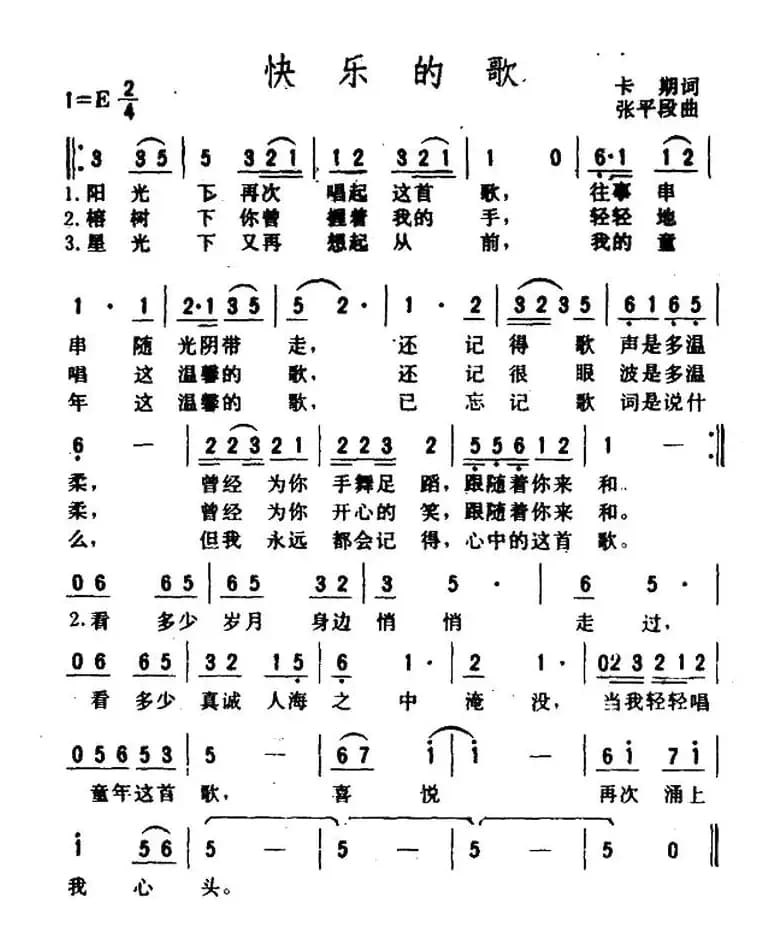 快乐的歌
1=E 2/4
卡 期 词
张平段 曲
3 35 | 5 321 | 12 321 | 1 0 | 6·1 12 |
1.阳光 下 再次 唱起 这首 歌, 往事 串
2.榕树 下 你曾 握着 我的 手, 轻轻 地
3.星光 下 又再 想起 从 前, 我的 童
1 · 1 | 2·1 35 | 5 2· | 1 · 2 | 3235 | 6165 |
串 随 光阴带 走, 还 记 得 歌 声是多温
唱 这 温馨的 歌, 还 记 很 眼 波是多温
年 这 温馨的 歌, 已 忘 记 歌 词是说什
6 — | 223 21 | 223 2 | 556 12 | 1 — :||
柔, 曾经 为你 手舞足 蹈,跟随着你来 和.
柔, 曾经 为你 开心的 笑,跟随着你来 和。
么, 但我 永远 都会记 得,心中的这首 歌。
06 65 | 65 32 | 3 5· | 6 5· |
2.看 多少 岁月 身边 悄 悄 走 过,
06 65 | 32 15 | 6 1· | 2 1· | 023 212 |
看 多少 真诚 人海 之 中 淹 没, 当我轻轻唱
05653 | 5 — | 67 i | i — | 6i 7i |
童年这首 歌, 喜 悦 再次 涌上
i 56 | 5 — | 5 — | 5 — | 5 0 ||
我 心 头。